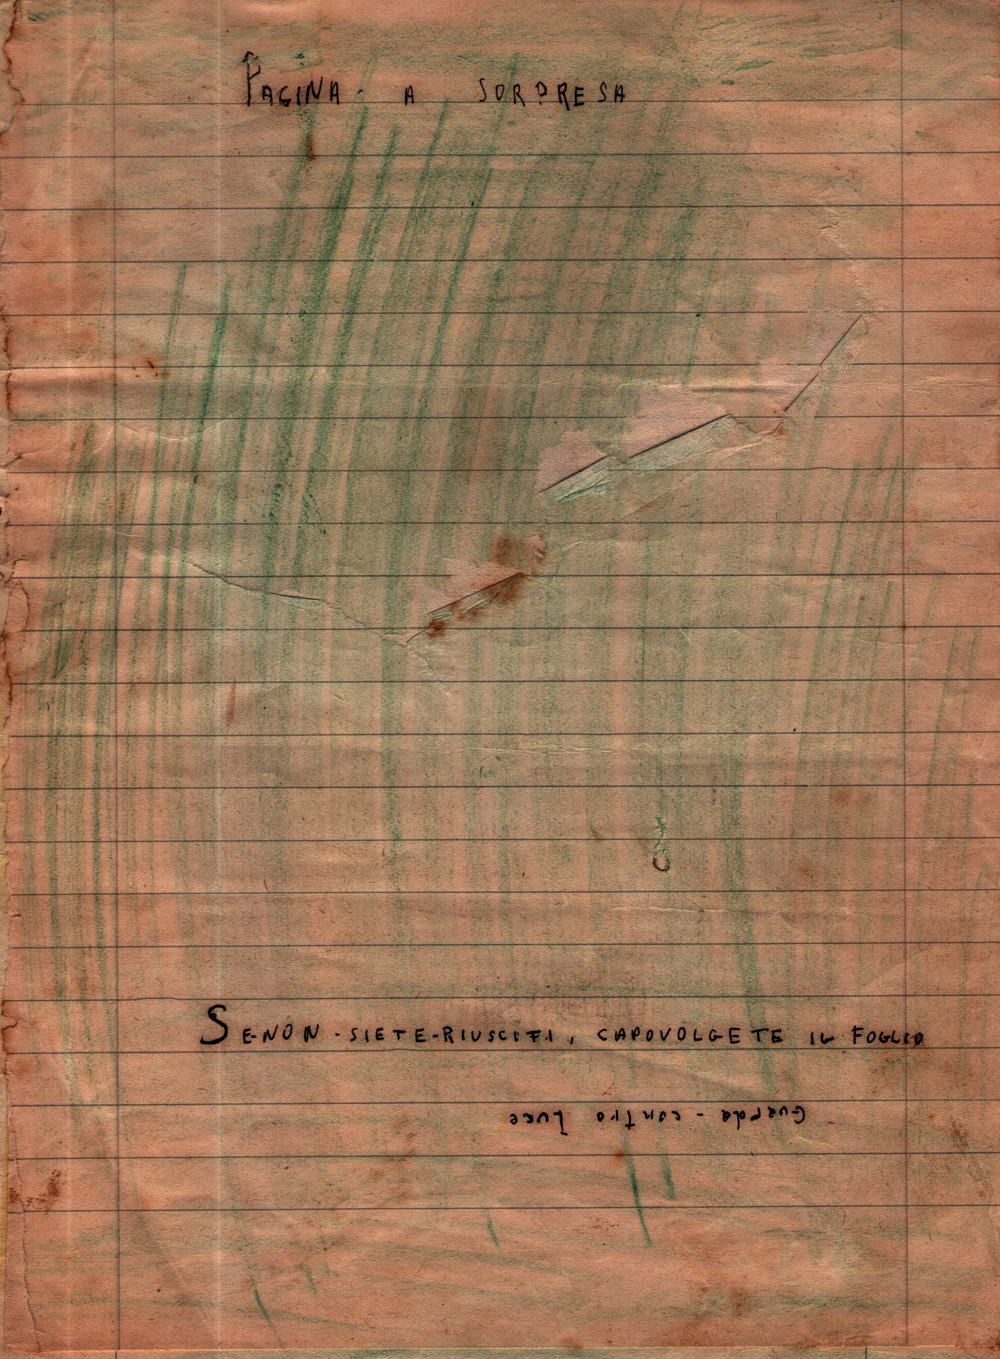 PAGINA - A SORPRESA
SE-NON - SIETE-RIUSCITI, CAPOVOLGETE IL FOGLIO
Guarda - contro luce